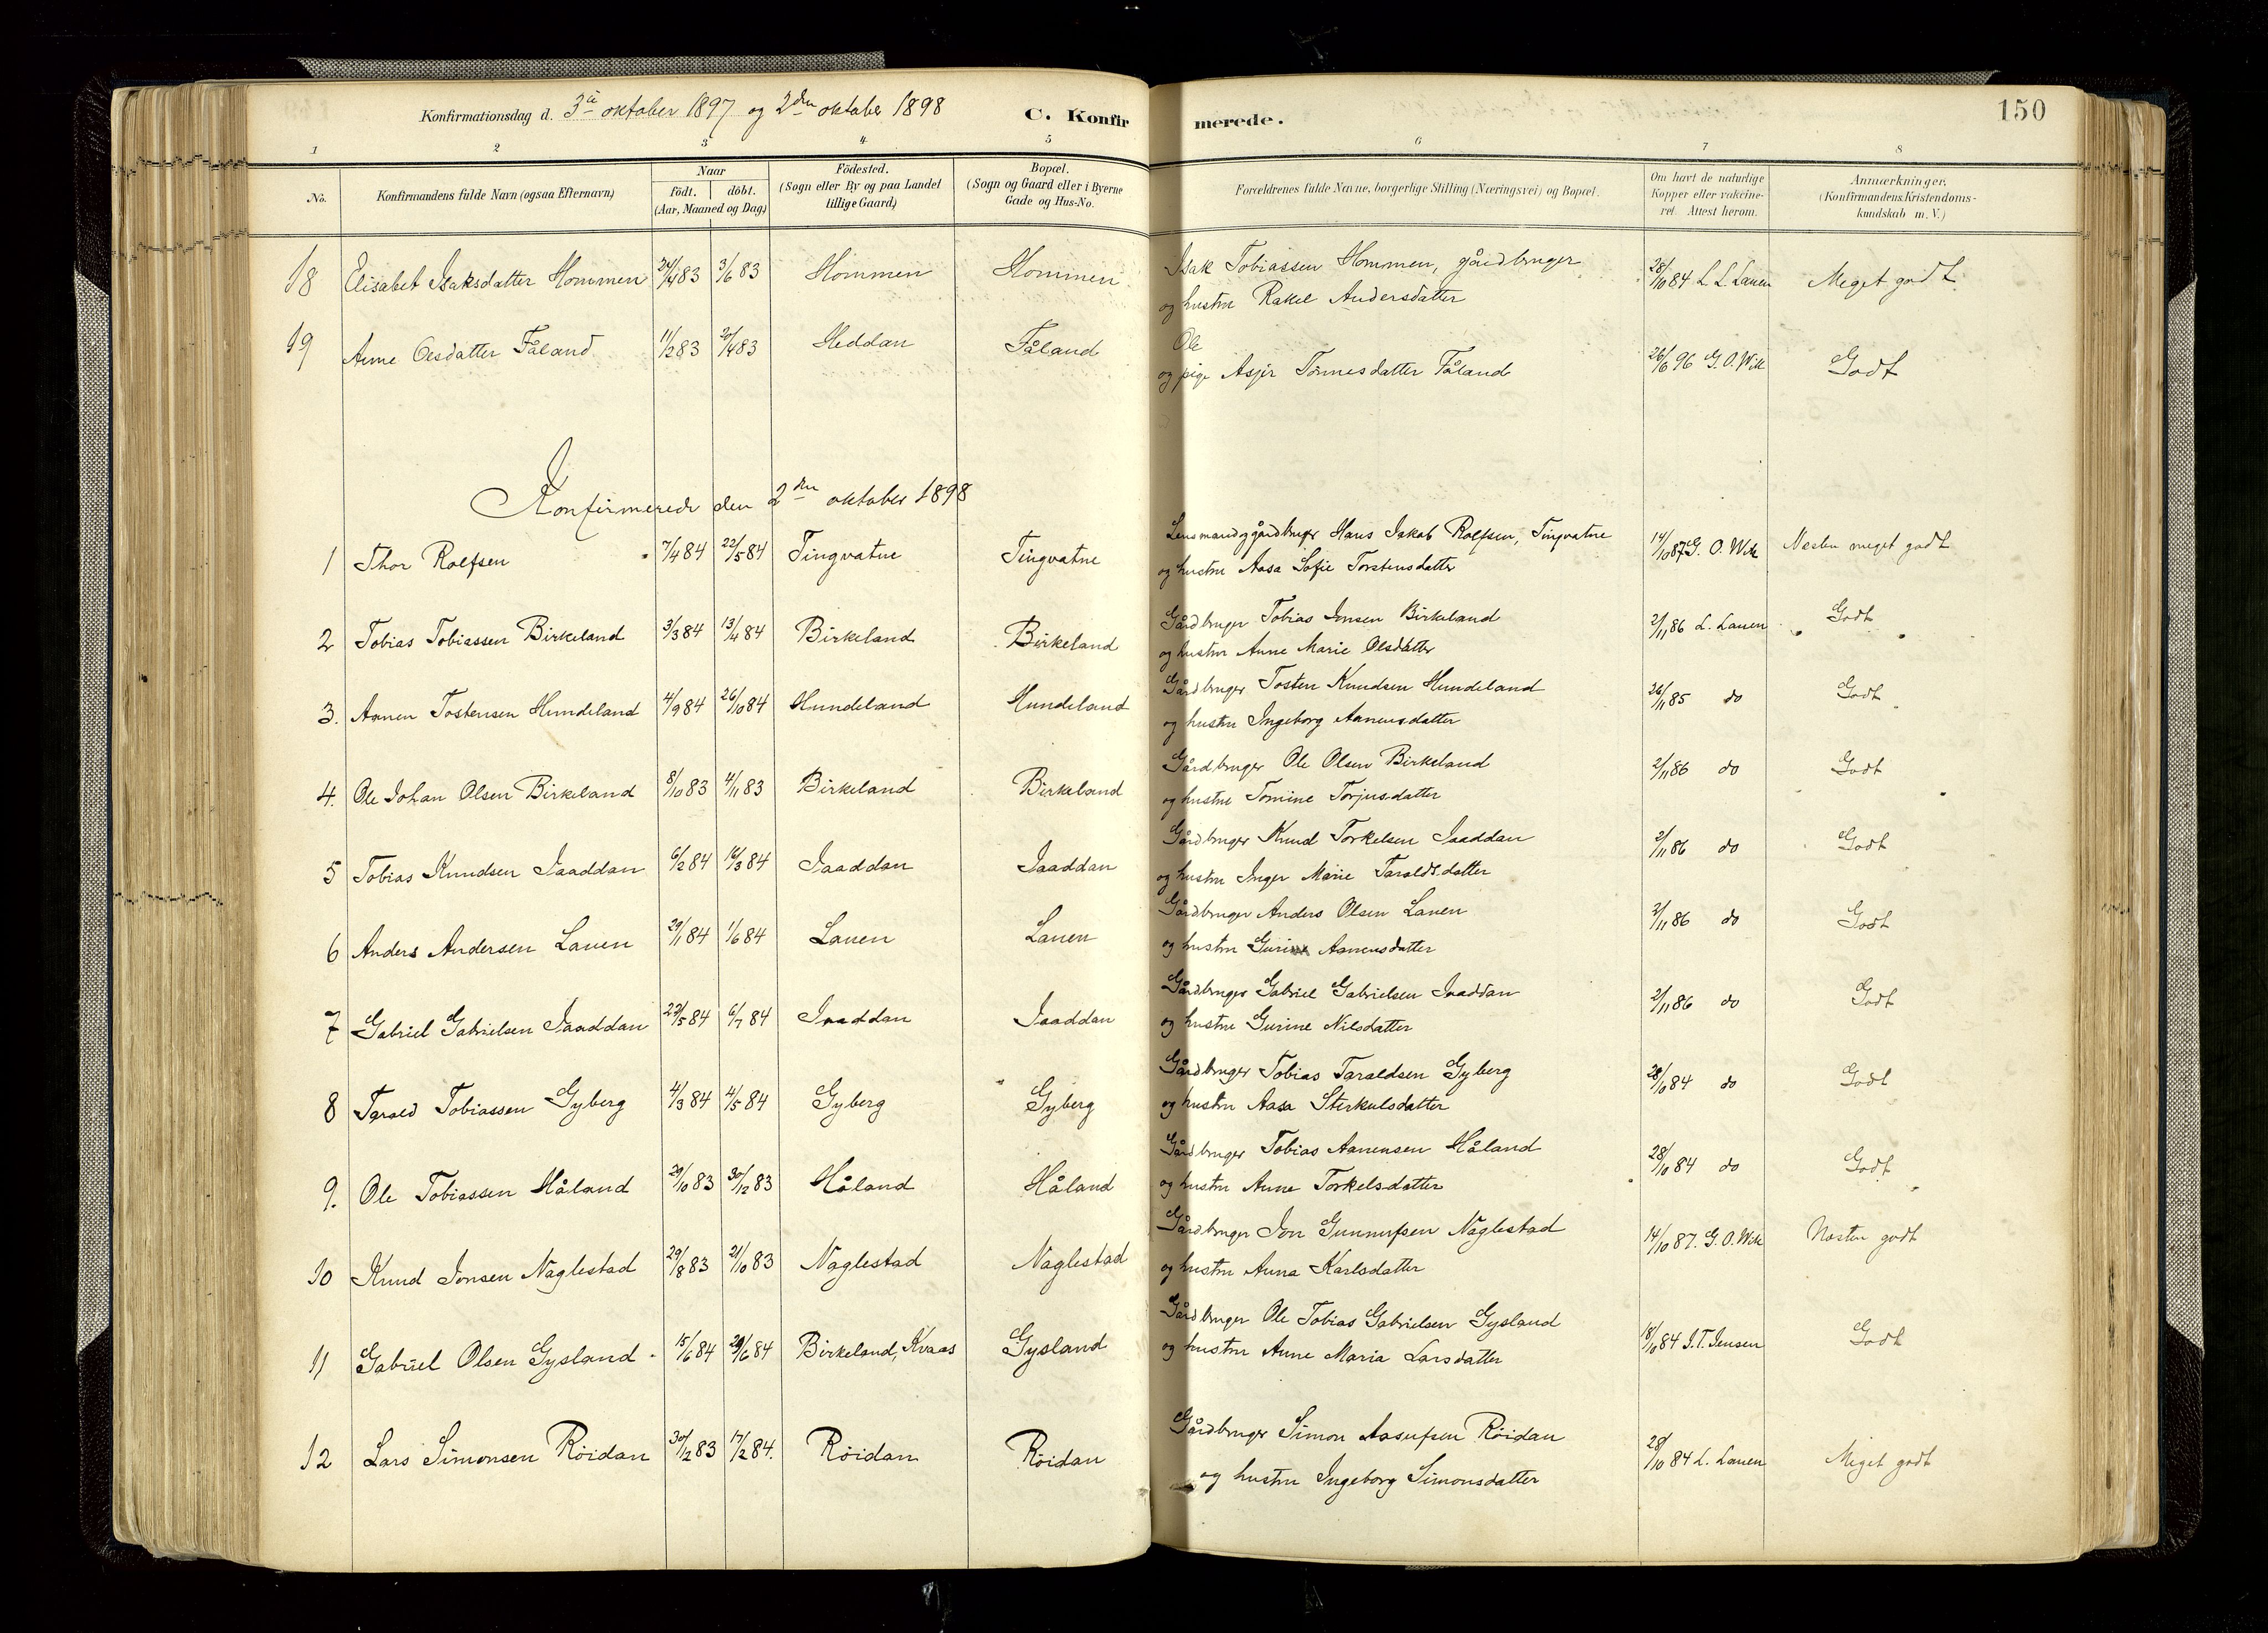 Konfirmationsdag d. 3die oktober 1897 og 2den oktober 1898 C. Konfirmerede. 150
1 2 3 4 5 6 7 8
No. Konfirmandens fulde Navn (ogsaa Efternavn) Naar födt. döbt. (Aar, Maaned og Dag) Födested. (Sogn eller By og paa Landet tillige Gaard) Bopæl. (Sogn og Gaard eller i Byerne Gade og Hus-No. Forældrenes fulde Navne, borgerlige Stilling (Næringsvei) og Bopæl. Om havt de naturlige Kopper eller vakcineret. Attest herom. Anmærkninger. (Konfirmandens Kristendomskundskab m. V.)
18 Elisabet Isaksdatter Hommen 24/4 83 3/6 83 Hommen Hommen Isak Tobiassen Hommen, gårdbruger
og hustru Rakel Andersdatter 28/10 84 L. L. Lauen Meget godt
19 Anne Olsdatter Fåland 11/2 83 20/4 83 Heddan Fåland Ole
og pige Asjer Tönnesdatter Fåland 26/6 96 G. O. Wik Godt
Konfirmerede den 2den oktober 1898
1 Thor Rolfsen 7/4 84 22/5 84 Tingvatne Tingvatne Lensmand, gårdbruger Hans Jakob Rolfsen, Tingvatne
og hustru Aasa Sofie Torstensdatter 14/10 87 G. O. Wik Næsten meget godt
2 Tobias Tobiassen Birkeland 3/3 84 13/4 84 Birkeland Birkeland Gårdbruger Tobias Jonsen Birkeland
og hustru Anne Marie Olsdatter 2/11 86 L. Lauen Godt
3. Aanen Tostensen Hundeland 4/9 84 26/10 84 Hundeland Hundeland Gårdbruger Tosten Knudsen Hundeland
og hustru Ingeborg Aanensdatter 26/11 85 do Godt
4. Ole Johan Olsen Birkeland 8/10 83 4/11 83 Birkeland Birkeland Gårdbruger Ole Olsen Birkeland
og hustru Tomine Torjusdatter 2/11 86 do Godt
5 Tobias Knudsen Jaaddan 6/2 84 16/3 84 Jaaddan Jaaddan Gårdbruger Knud Torkelsen Jaaddan
og hustru Inger Marie Taraldsdatter 2/11 86 do Godt
6 Anders Andersen Lauen 29/1 84 1/6 84 Lauen Lauen Gårdbruger Anders Olsen Lauen
og hustru Aanensdatter 2/11 86 do Godt
7 Gabriel Gabrielsen Jaaddan 23/5 84 6/7 84 Jaaddan Jaaddan Gårdbruger Gabriel Gabrielsen Jaaddan
og hustru Gurine Nilsdatter 2/11 86 do Godt
8 Tarald Tobiassen Gyberg 4/3 84 4/5 84 Gyberg Gyberg Gårdbruger Tobias Taraldsen Gyberg
og hustru Aasa Sterkulsdatter 28/10 84 do Godt
9. Ole Tobiassen Håland 29/10 83 30/12 83 Håland Håland Gårdbruger Tobias Aanensen Håland
og hustru Anne Torkelsdatter 28/10 84 do Godt
10 Knud Jonsen Naglestad 29/8 83 21/10 83 Naglestad Naglestad Gårdbruger Jon Gunnufsen Naglestad
og hustru Anna Karlsdatter 14/10 87. G. O. Wik Næsten godt
11 Gabriel Olsen Gysland 15/6 84 29/6 84 Birkeland, Kvaas Gysland Gårdbruger Ole Tobias Gabrielsen Gysland
og hustru Anne Maria Larsdatter 18/10 84 J. T. Jensen Godt
12 Lars Simonsen Röidan 30/12 83 17/2 84. Röidan Röidan Gårdbruger Simon Aasufsen Röidan
og hustru Ingeborg Simonsdatter 28/10 84 L. Lauen Meget godt